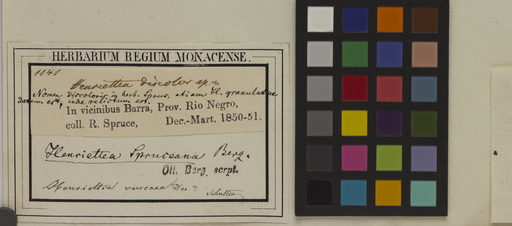 HERBARIUM REGIUM MONACENSE.
1141
Henriettea discolor sp. n
Nomen discoloris in herb. Spruc. etiam H. granulatae
datum est, inde relictum est.
In vicinibus Barra, Prov. Rio Negro,
coll. R. Spruce, Dec.-Mart. 1850-51.
Henriettea Spruceana Berg.
Ott. Berg. scrpt.
Henriettea